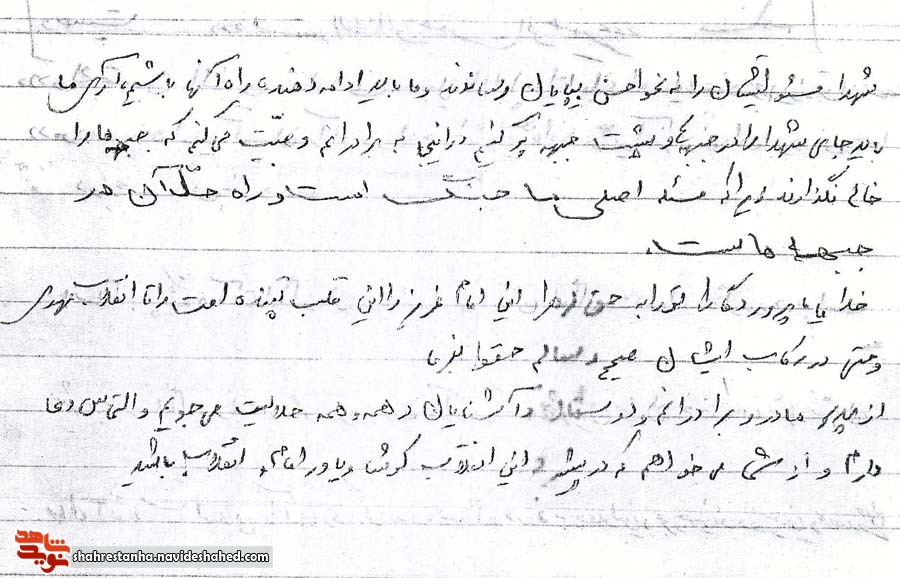 شهدا مسئولیتشان را به نحو احسن بپایان رساندند و ما باید ادامه دهنده راه آنها باشیم، آری ما
باید جای شهدا را در جبهه ها و پشت جبهه پر کنیم و اینجانب به برادرانم وصیّت می کنم که جبهه ها را
خالی نگذارند چرا که مسئله اصلی ما جنگ است و راه حلّ آن در
جبهه ها است.
خدایا پروردگارا تو را به حق زهرا این امام عزیز را این قلب تپنده امت را تا انقلاب مهدی
و حتی در رکاب ایشان صحیح و سالم حفظ بفرما
از پدر و مادر و برادرانم و دوستان و آشنایان و همه و همه حلالیت می جویم و التماس دعا
دارم و از شما می خواهم که در پیشبرد این انقلاب کوشا و یاور امام و انقلاب باشید
شاهد
نوید
shahrestanha.navideshahed.com